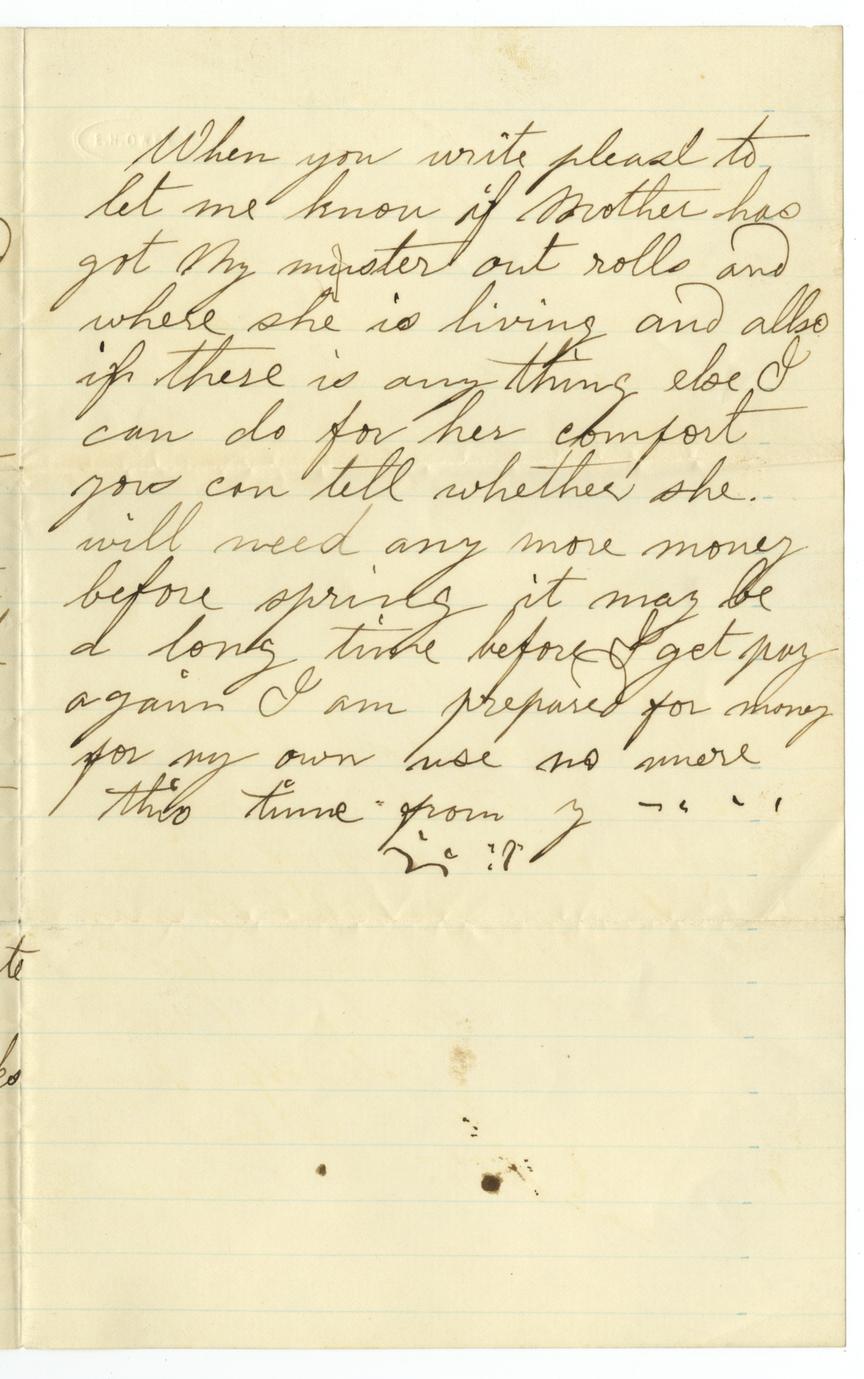 When you write please to
let me know if Mother has
got My muster out rolls and
where she is living and allso
if there is any thing else I
can do for her comfort
you can tell whether she.
will need any more money
before spring it may be
a long time before I get pay
again I am prepared for money
for my own use no more
this time from
te